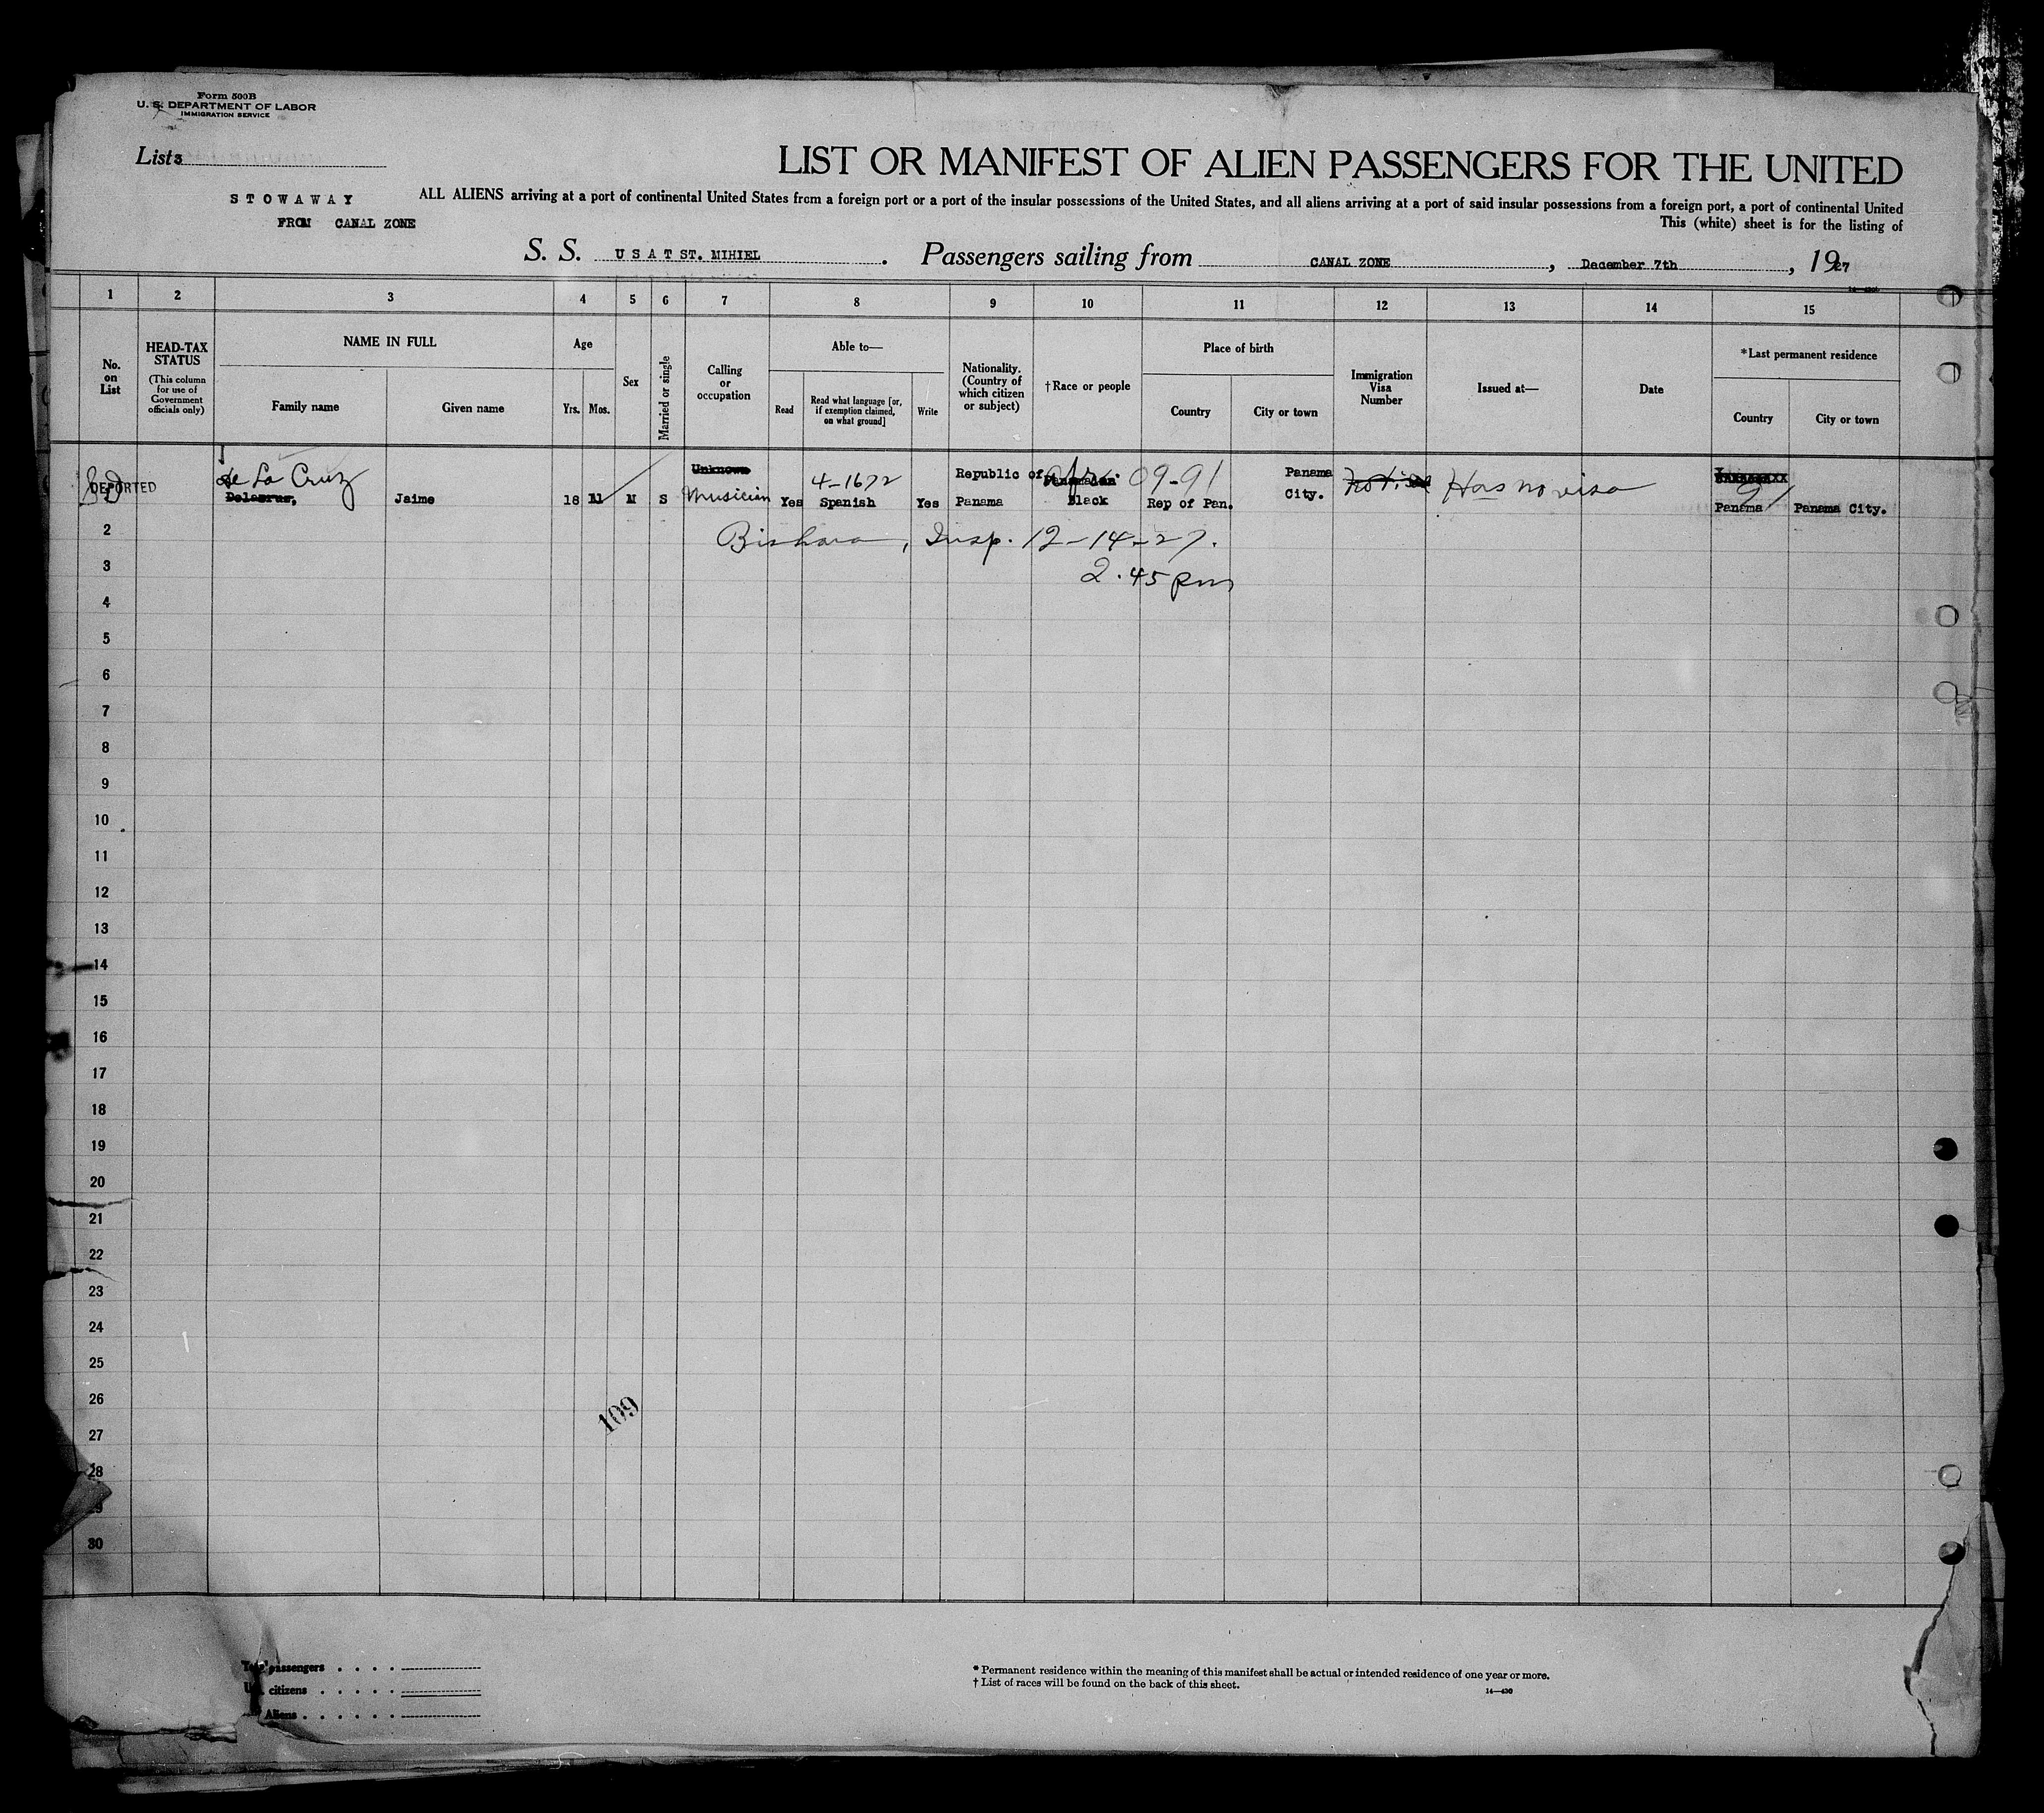 Form 500B
U. S. DEPARTMENT OF LABOR
IMMIGRATION SERVICE
List 3
LIST OR MANIFEST OF ALIEN PASSENGERS FOR THE UNITED
STOWAWAY
FROM CANAL ZONE
ALL ALIENS arriving at a port of continental United States from a foreign port or a port of the insular possessions of the United States, and all aliens arriving at a port of said insular possessions from a foreign port, a port of continental United
This (white) sheet is for the listing of
S. S. U S A T ST. MIHIEL. Passengers sailing from CANAL ZONE, December 7th, 1927
1 2 3 4 5 6 7 8 9 10 11 12 13 14 15
No. on List
HEAD-TAX STATUS
(This column for use of Government officials only)
NAME IN FULL
Family name
Given name
Age
Yrs.
Mos.
Sex
Married or single
Calling or occupation
Able to—
Read
Read what language [or, if exemption claimed, on what ground]
Write
Nationality. (Country of which citizen or subject)
†Race or people
Place of birth
Country
City or town
Immigration Visa Number
Issued at—
Date
*Last permanent residence
Country
City or town
DEPORTED
de La Cruz
Delacruz,
Jaime
18 11 M S
Unknown
Musician
Yes
4-1672
Spanish
Yes
Republic of
Panama
Afr.
Black
09-91
Rep of Pan.
Panama
City.
Has no visa
91
Panama
Panama City.
Bishara, Insp. 12-14-27.
2.45 pm
2
3
4
5
6
7
8
9
10
11
12
13
14
15
16
17
18
19
20
21
22
23
24
25
26
109
27
28
30
Total passengers
U.S. citizens
Aliens
* Permanent residence within the meaning of this manifest shall be actual or intended residence of one year or more.
† List of races will be found on the back of this sheet.
14—430